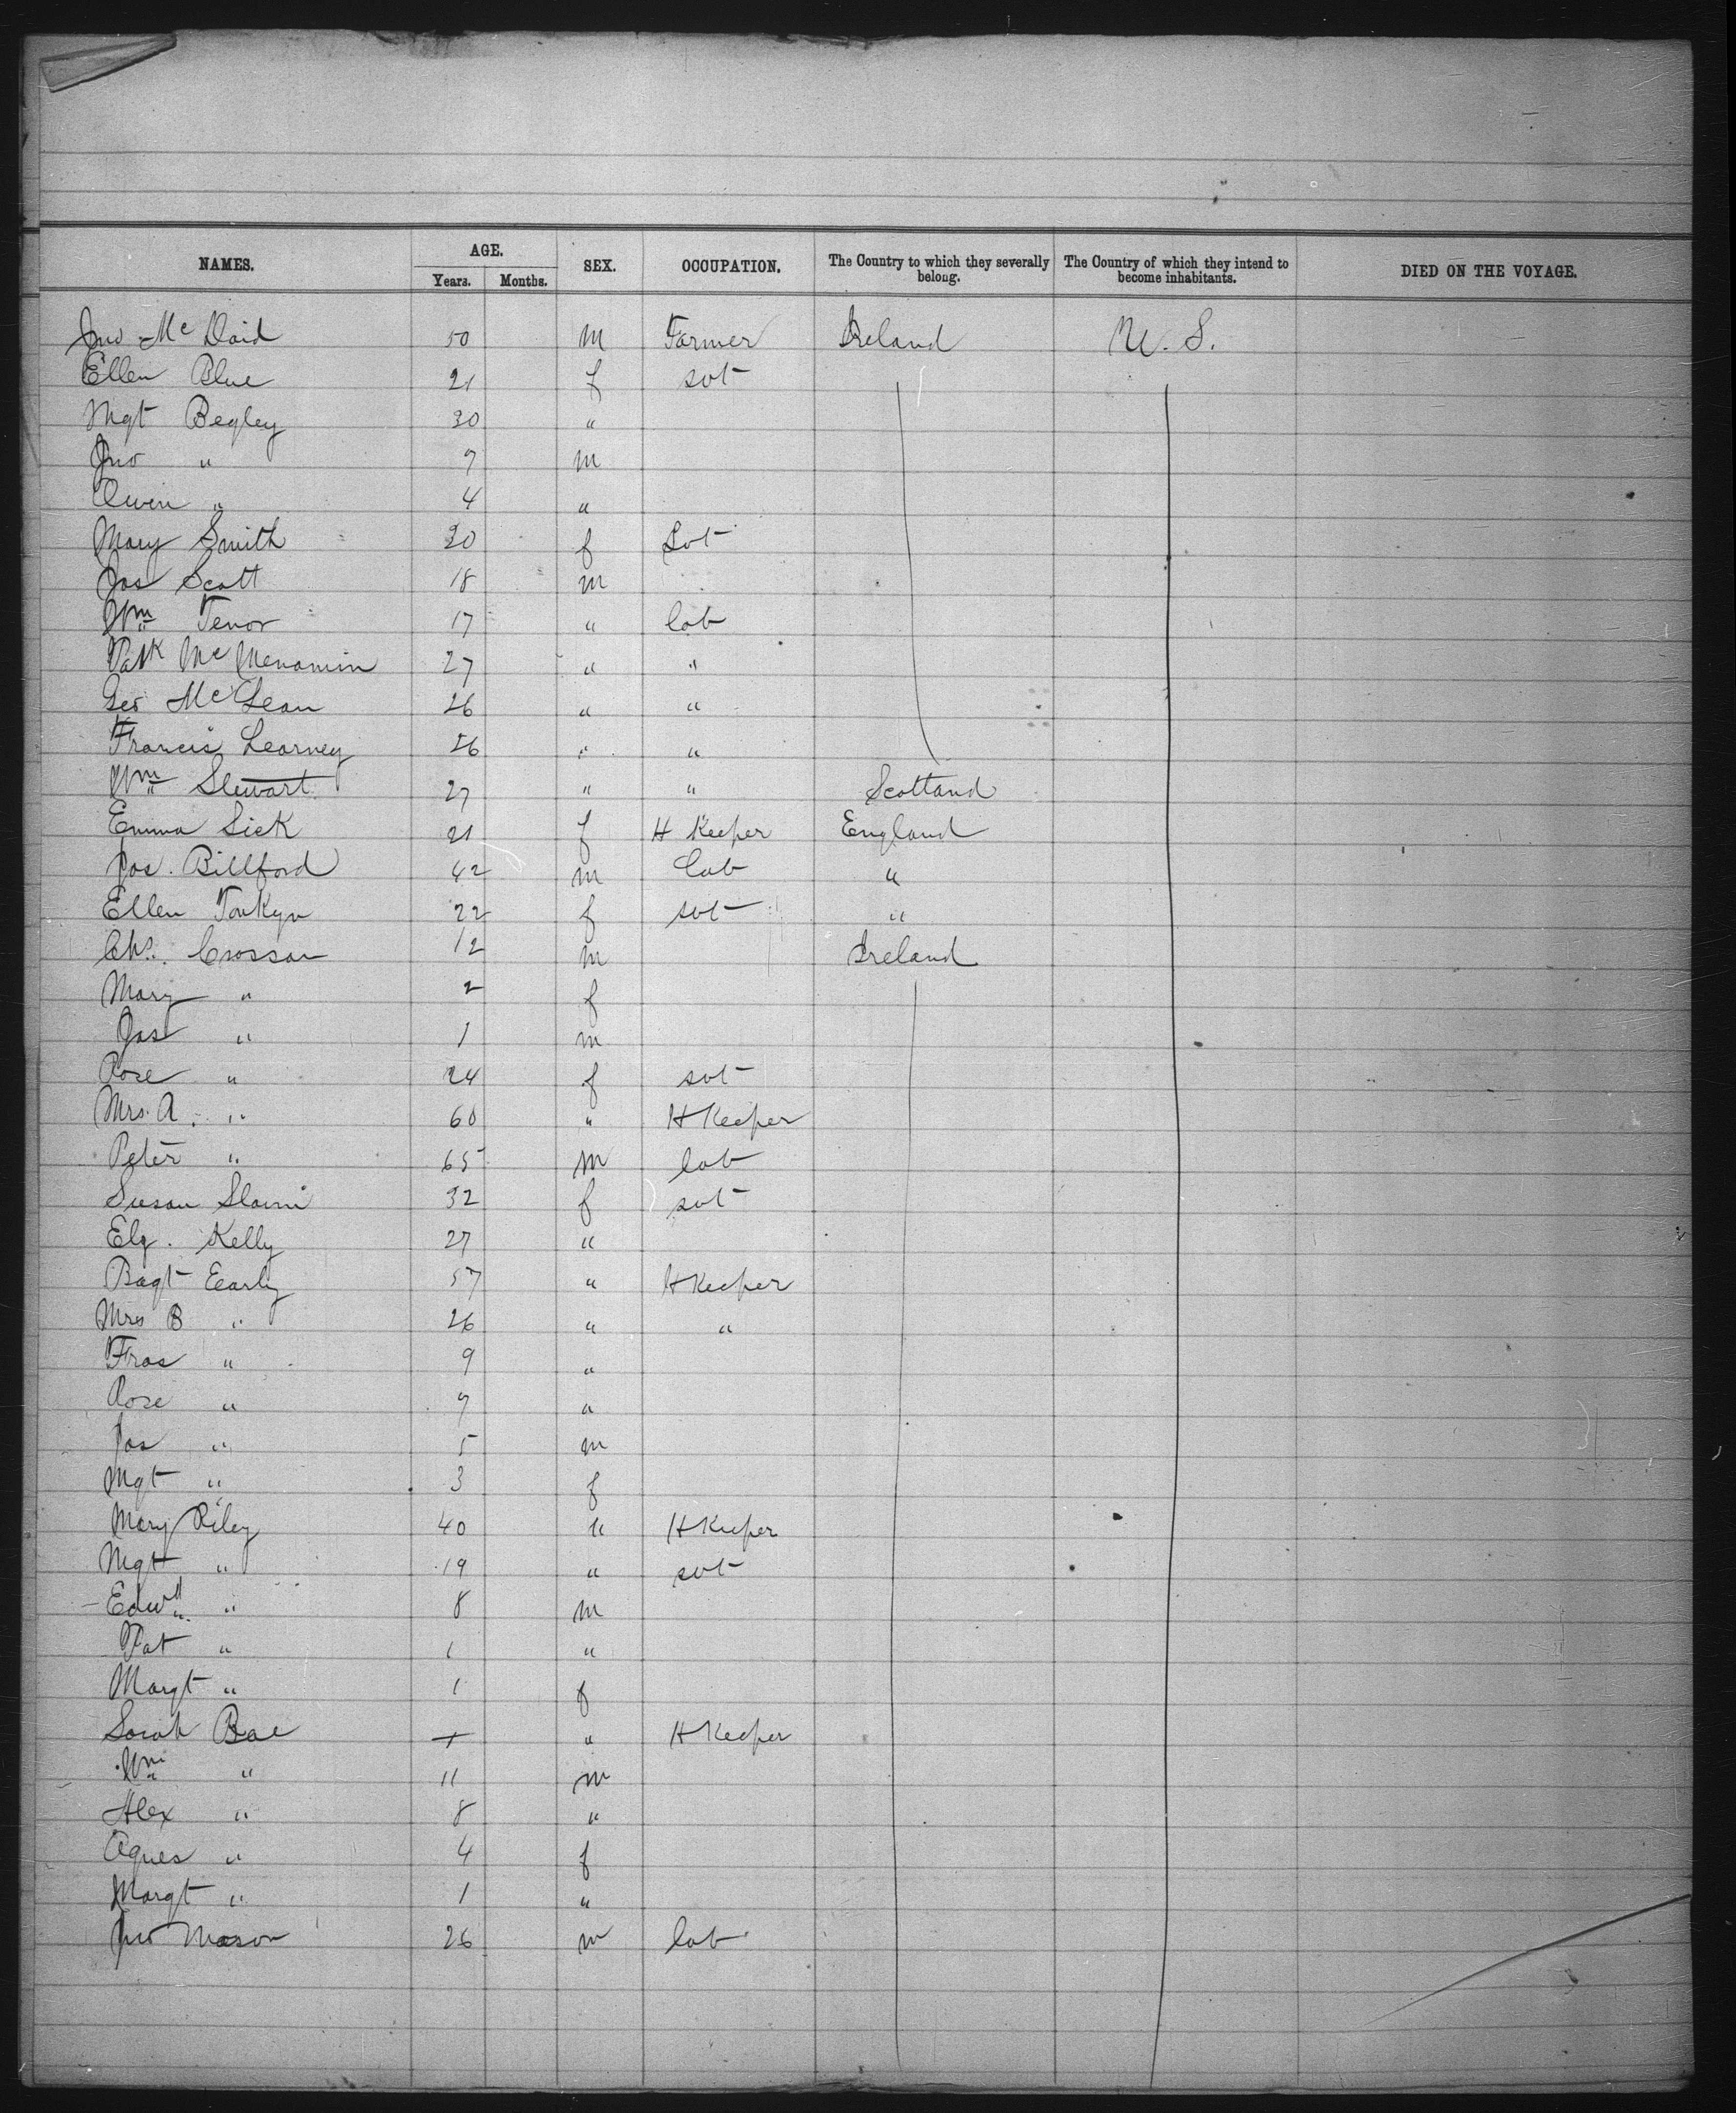 NAMES. AGE. Years. Months. SEX. OCCUPATION. The Country to which they severally belong. The Country of which they intend to become inhabitants. DIED ON THE VOYAGE.
Jno McDaid 50 m Farmer Ireland U.S.
Ellen Blue 21 f svt
Mgt Begley 30 "
Jno " 7 m
Owen " 4 "
Mary Smith 20 f Svt
Jas Scott 18 m
Wm Tenor 17 " lab
Patk McMenamin 27 " "
Geo McLean 26 " "
Francis Learney 26 " "
Wm Stewart 27 " " Scotland
Emma Sick 21 f H Keeper England
Jos. Billford 42 m Lab "
Ellen Tonkyn 22 f svt "
Chs. Crossan 12 m Ireland
Mary " 2 f
Jas " 1 m
Rose " 24 f svt
Mrs. A. " 60 " H Keeper
Peter " 65 m lab
Susan 32 f svt
Kelly 27 "
Early 57 " H Keeper
Mrs B " 26 " "
Fras " 9 "
Rose " 7 "
Jos " 5 m
Mgt " 3 f
Mary Riley 40 " H Keeper
Mgt " 19 " svt
Edwd " 8 m
Pat " 1 "
Margt " 1 f
Sarah Rae + " H Keeper
Wm " 11 m
Alex " 8 "
Agnes " 4 f
Margt " 1 "
Jno Mason 26 m lab